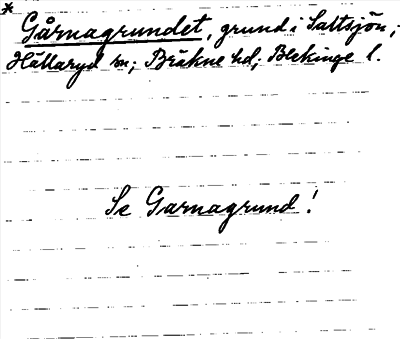 * Gårnagrundet, grund i Saltsjön;
Hällaryd sn; Bräkne hd; Blekinge l.
Se Garnagrund!